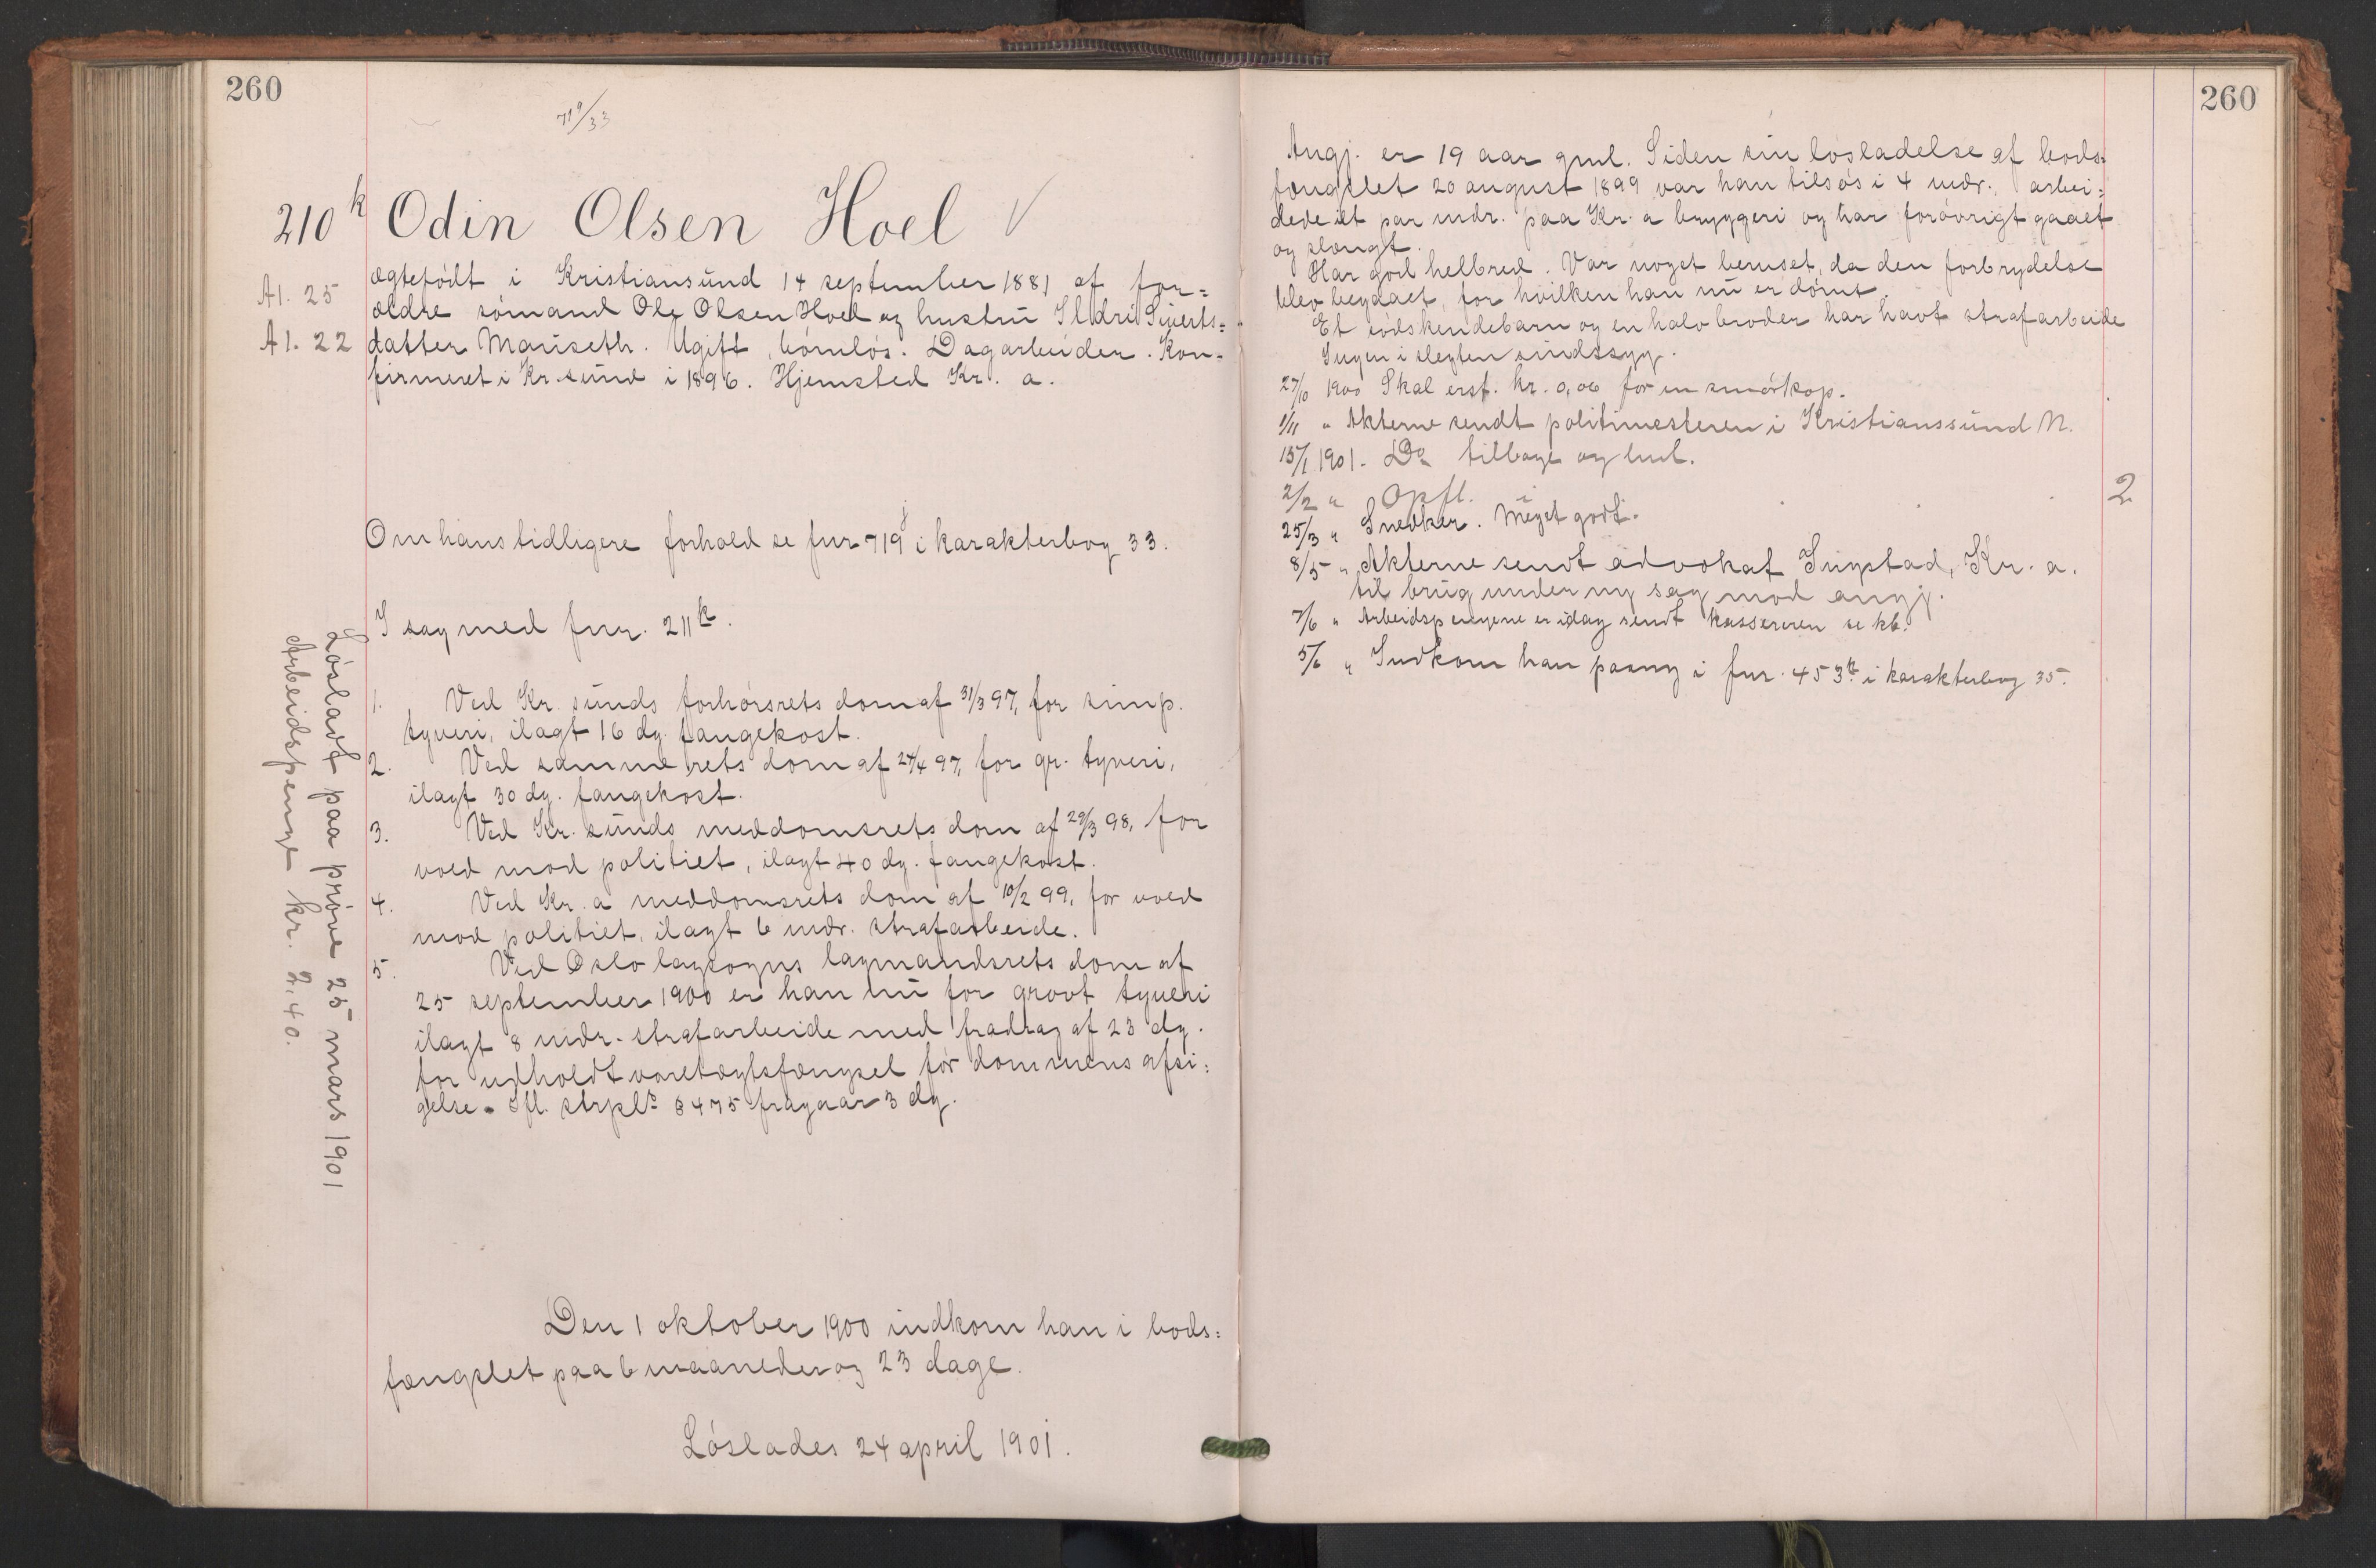 260
719/33
210k Odin Olsen Hoel
A1. 25
A1. 22
ægtefödt i Kristiansund 14 september 1881 af for=
ældre sömand Ole Olsen Hoel og hustru Ildri Sivерts=
datter Mariseth. Ugift, börnlös. Dagarbeider. Kon=
firmeret i Kr.sund i 1896. Hjemsted Kr. a.
Om hans tidligere forhold se fnr 719 j i karakterbog 33.
I sag med fnr. 211k.
1. Ved Kr. sunds forhörsrets dom af 31/3 97, for simp.
tyveri, ilagt 16 dg. fangekost.
2. Ved samme rets dom af 24/4 97, for gr. tyveri,
ilagt 30 dg. fangekost.
3. Ved Kr. sunds meddomsrets dom af 29/3 98, for
vold mod politiet, ilagt 40 dg. fangekost.
4. Ved Kr. a meddomsrets dom af 10/2 99, for vold
mod politiet, ilagt 6 mdr. strafarbeide.
5. Ved Oslo lagsogns lagmandsrets dom af
25 september 1900 er han nu for grovt tyveri
ilagt 8 mdr. strafarbeide med fradrag af 23 dg.
for udholdt varetægtsfængsel för dommens afsi=
gelse. Ifl. strpls § 475 fragaar 3 dg.
Den 1 oktober 1900 indkom han i bods=
fængslet paa 6 maaneder og 23 dage.
Löslades 24 april 1901.
Lösladt paa pröve 25 mars 1901
Arbeidspenge kr. 2,40.
260
Angj. er 19 aar gml. Siden sin lösladelse af bods=
fængslet 20 august 1899 var han tilsös i 4 mdr., arbei=
dede et par mdr. paa Kr. a bryggeri og har forövrigt gaaet
og slængt.
Har god helbred. Var noget beruset, da den forbrydelse
blev begaaet, for hvilken han nu er dömt.
Et södskendebarn og en halvbroder har havt strafarbeide
Ingen i slegten sindssyg.
27/10 1900 Skal erst. kr. 0,06 for en smörkop.
1/11 " Akterne sendt politimesteren i Kristianssund N.
15/1 1901. Do tilbage og hml.
2/2 " Opfl.
2
25/3 " Snedker. Meget godt.
8/5 " Akterne sendt advokat Ingstad, Kr. a.
til brug under ny sag mod angj.
7/6 " Arbeidspengene er idag sendt kassereren se kb.
5/6 " Indkom han paany i fnr. 453k i karakterbog 35.